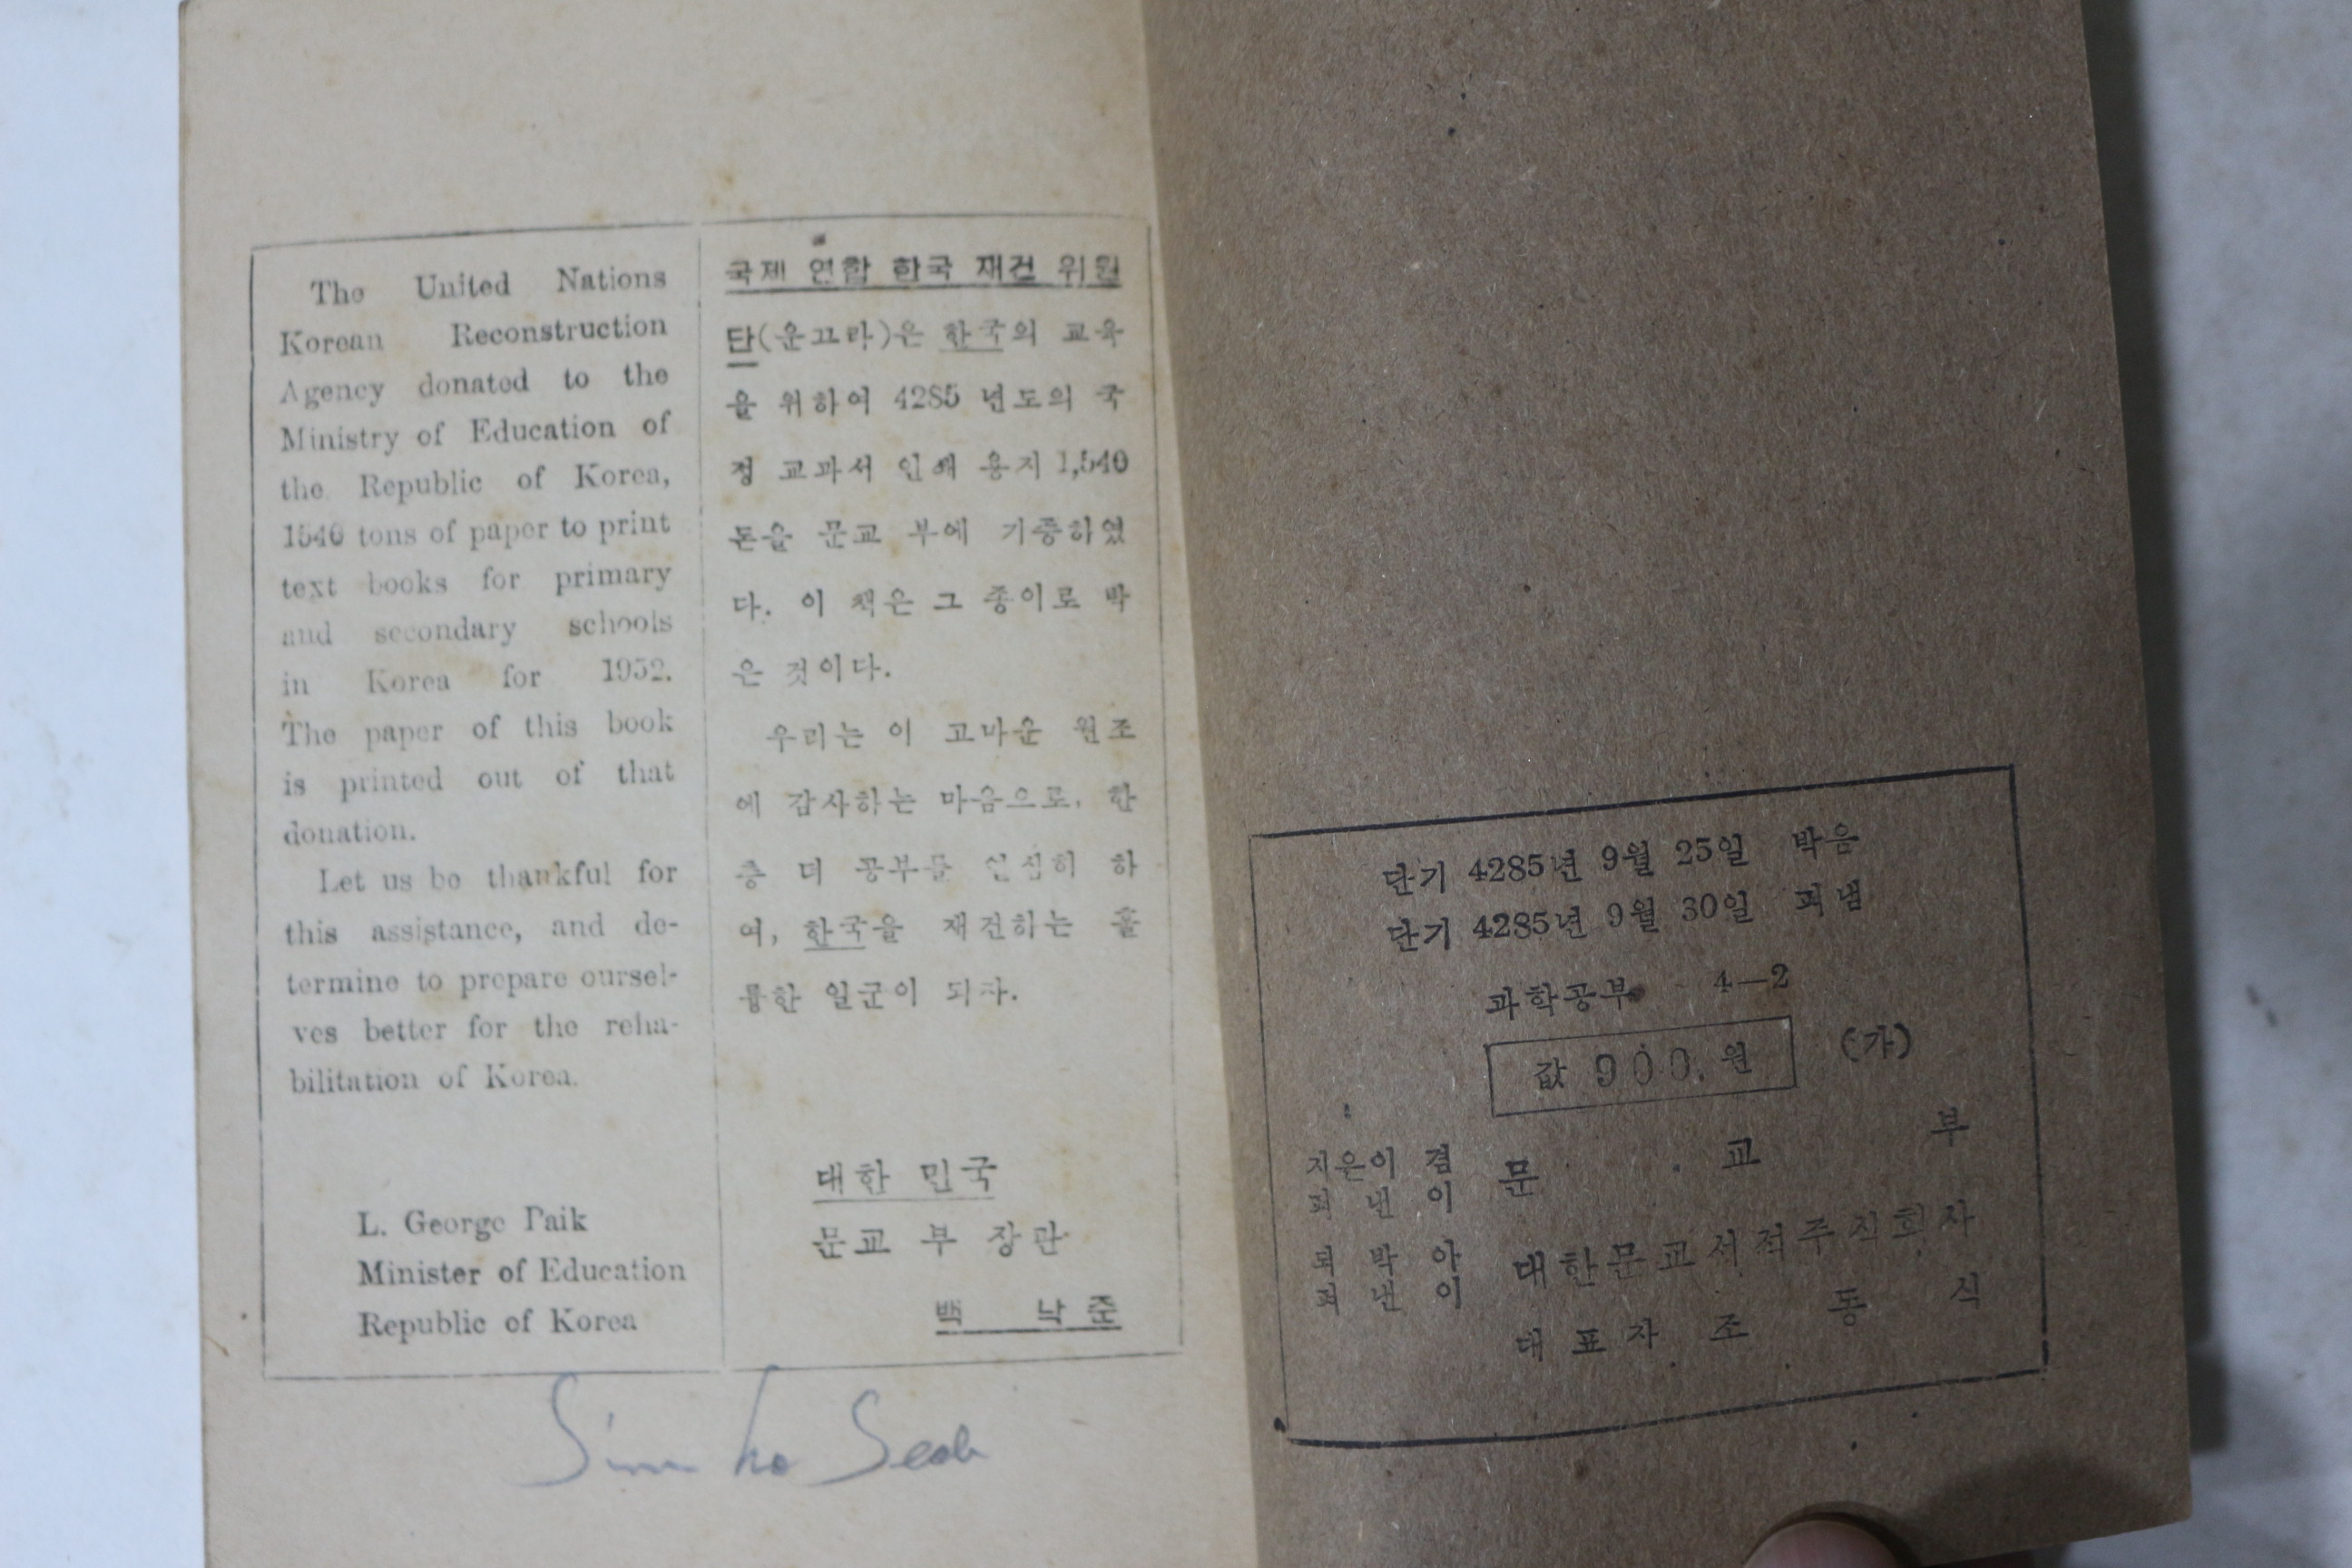 The United Nations
Korean Reconstruction
Agency donated to the
Ministry of Education of
the Republic of Korea,
1540 tons of paper to print
text books for primary
and secondary schools
in Korea for 1952.
The paper of this book
is printed out of that
donation.
Let us be thankful for
this assistance, and de-
termine to prepare oursel-
ves better for the reha-
bilitation of Korea.
L. George Paik
Minister of Education
Republic of Korea
국제 연합 한국 재건 위원
단(운끄라)은 한국의 교육
을 위하여 4285 년도의 국
정 교과서 인쇄 용지 1,540
톤을 문교 부에 기증하였
다. 이 책은 그 종이로 박
은 것이다.
우리는 이 고마운 원조
에 감사하는 마음으로, 한
층 더 공부를 열심히 하
여, 한국을 재건하는 훌
륭한 일군이 되자.
대한 민국
문교 부 장관
백 낙준
단기 4285년 9월 25일 박음
단기 4285년 9월 30일 펴냄
과학공부 4—2
값 900. 원 (가)
지은이 겸
펴 낸 이
문 교 부
박 아
펴 낸 이
대한문교서적주식회사
대표자 조 동 식